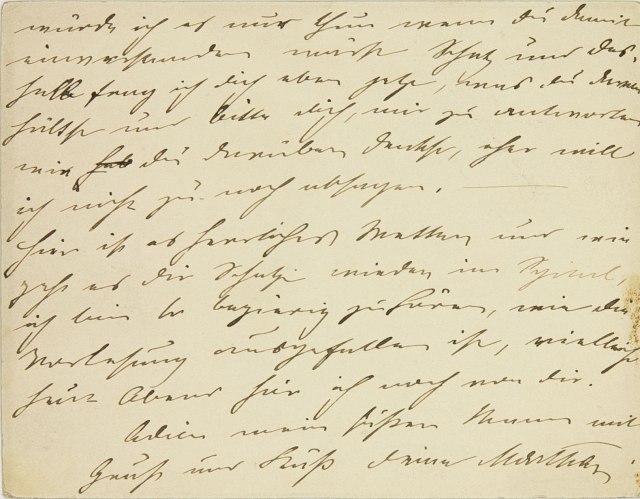 würde ich es nur thun wenn du damit
einverstanden wärst Schatz und des-
halb frag ich dich eben jetzt, was du davon
hältst und bitte dich, mir zu antworten
wie du darüber denkst, eher will
ich nicht zu noch absagen.
Hier ist es herrliches Wetter und wie
geht es dir Schatz wieder im
ich bin so begierig zu hören, wie die
Vorlesung ausgefallen ist, vielleicht
heut Abend hör ich noch von dir.
Adieu mein süßer Mann mit
Gruß und Kuß deine Martha